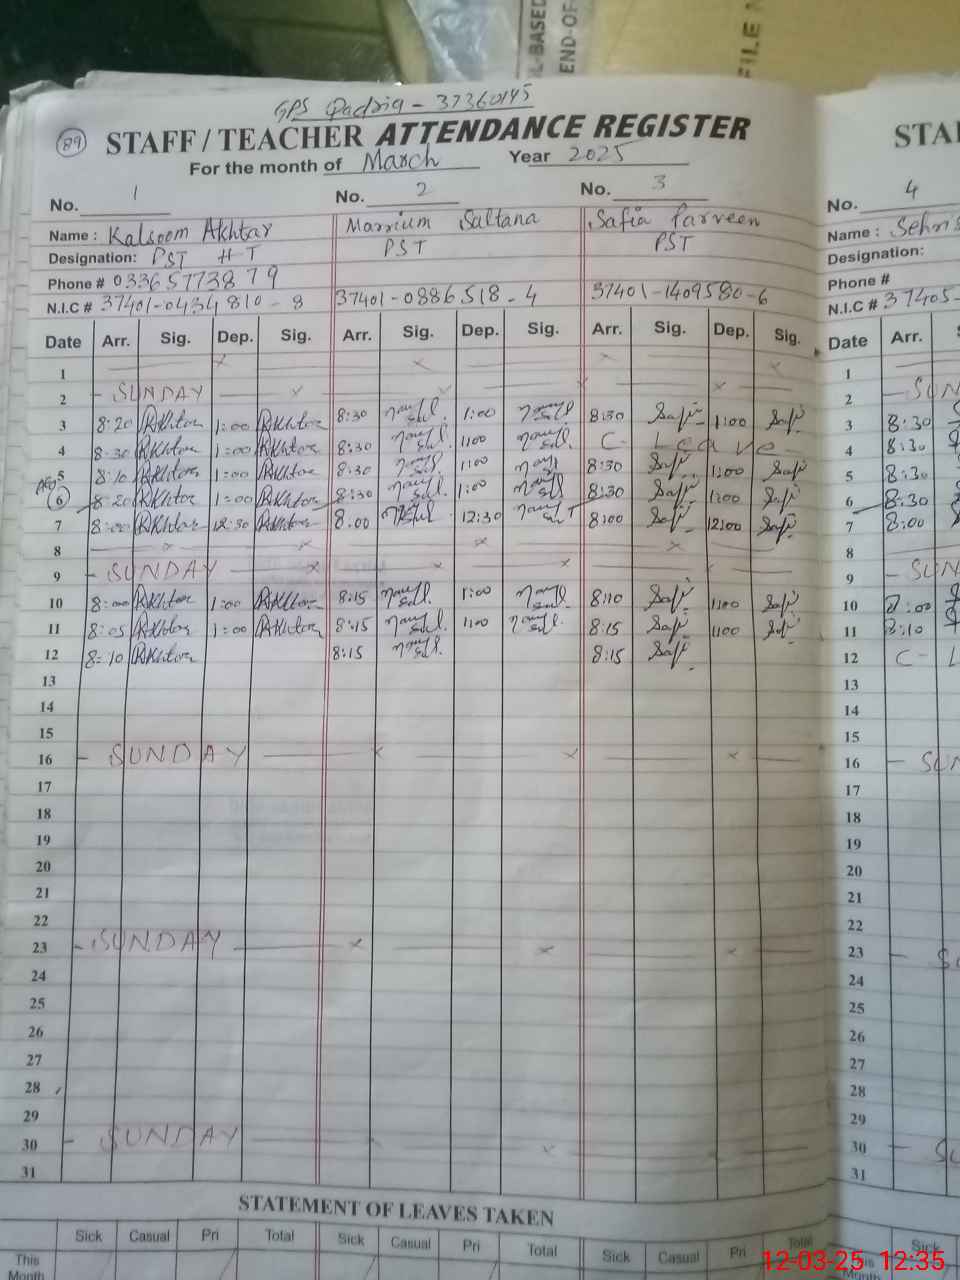 OL-BASED
END-OF-
FILE
GPS Qadria - 37360145
89
STAFF / TEACHER ATTENDANCE REGISTER
For the month of March Year 2025
No. 1 No. 2 No. 3
Name : Kalsoom Akhtar Marrium Saltana Safia Parveen
Designation: PST HT PST PST
Phone # 03365773879
N.I.C # 37401-0434810-8 37401-0886518-4 37401-1409580-6
Date Arr. Sig. Dep. Sig. Arr. Sig. Dep. Sig. Arr. Sig. Dep. Sig.
1
2 - SUNDAY
3 8:20 Akhtar 1:00 Akhtar 8:30 1:00 8:30 Safi 1:00 Safi
4 8:30 Akhtar 1:00 Akhtar 8:30 1:00 C- Leave
5 8:10 Akhtar 1:00 Akhtar 8:30 1:00 8:30 Safi 1:00 Safi
6 8:20 Akhtar 1:00 Akhtar 8:30 1:00 8:30 Safi 1:00 Safi
7 8:00 Akhtar 12:30 Akhtar 8:00 12:30 8:00 Safi 12:00 Safi
8
9 - SUNDAY
10 8:00 Akhtar 1:00 Akhtar 8:15 1:00 8:10 Safi 1:00 Safi
11 8:05 Akhtar 1:00 Akhtar 8:15 1:00 8:15 Safi 1:00 Safi
12 8:10 Akhtar 8:15 8:15 Safi
13
14
15
16 - SUNDAY
17
18
19
20
21
22
23 - SUNDAY
24
25
26
27
28
29
30 - SUNDAY
31
STATEMENT OF LEAVES TAKEN
Sick Casual Pri Total Sick Casual Pri Total Sick Casual Pri Total
This
Month
STA
No. 4
Name : Sehris
Designation:
Phone #
N.I.C # 37405-
Date Arr.
1
2 - SUN
3 8:30
4 8:30
5 8:30
6 8:30
7 8:00
8
9 - SUN
10 8:00
11 8:10
12 C- L
13
14
15
16 - SUN
17
18
19
20
21
22
23 - SU
24
25
26
27
28
29
30 - SU
31
Sick
This
Month
12-03-25 12:35